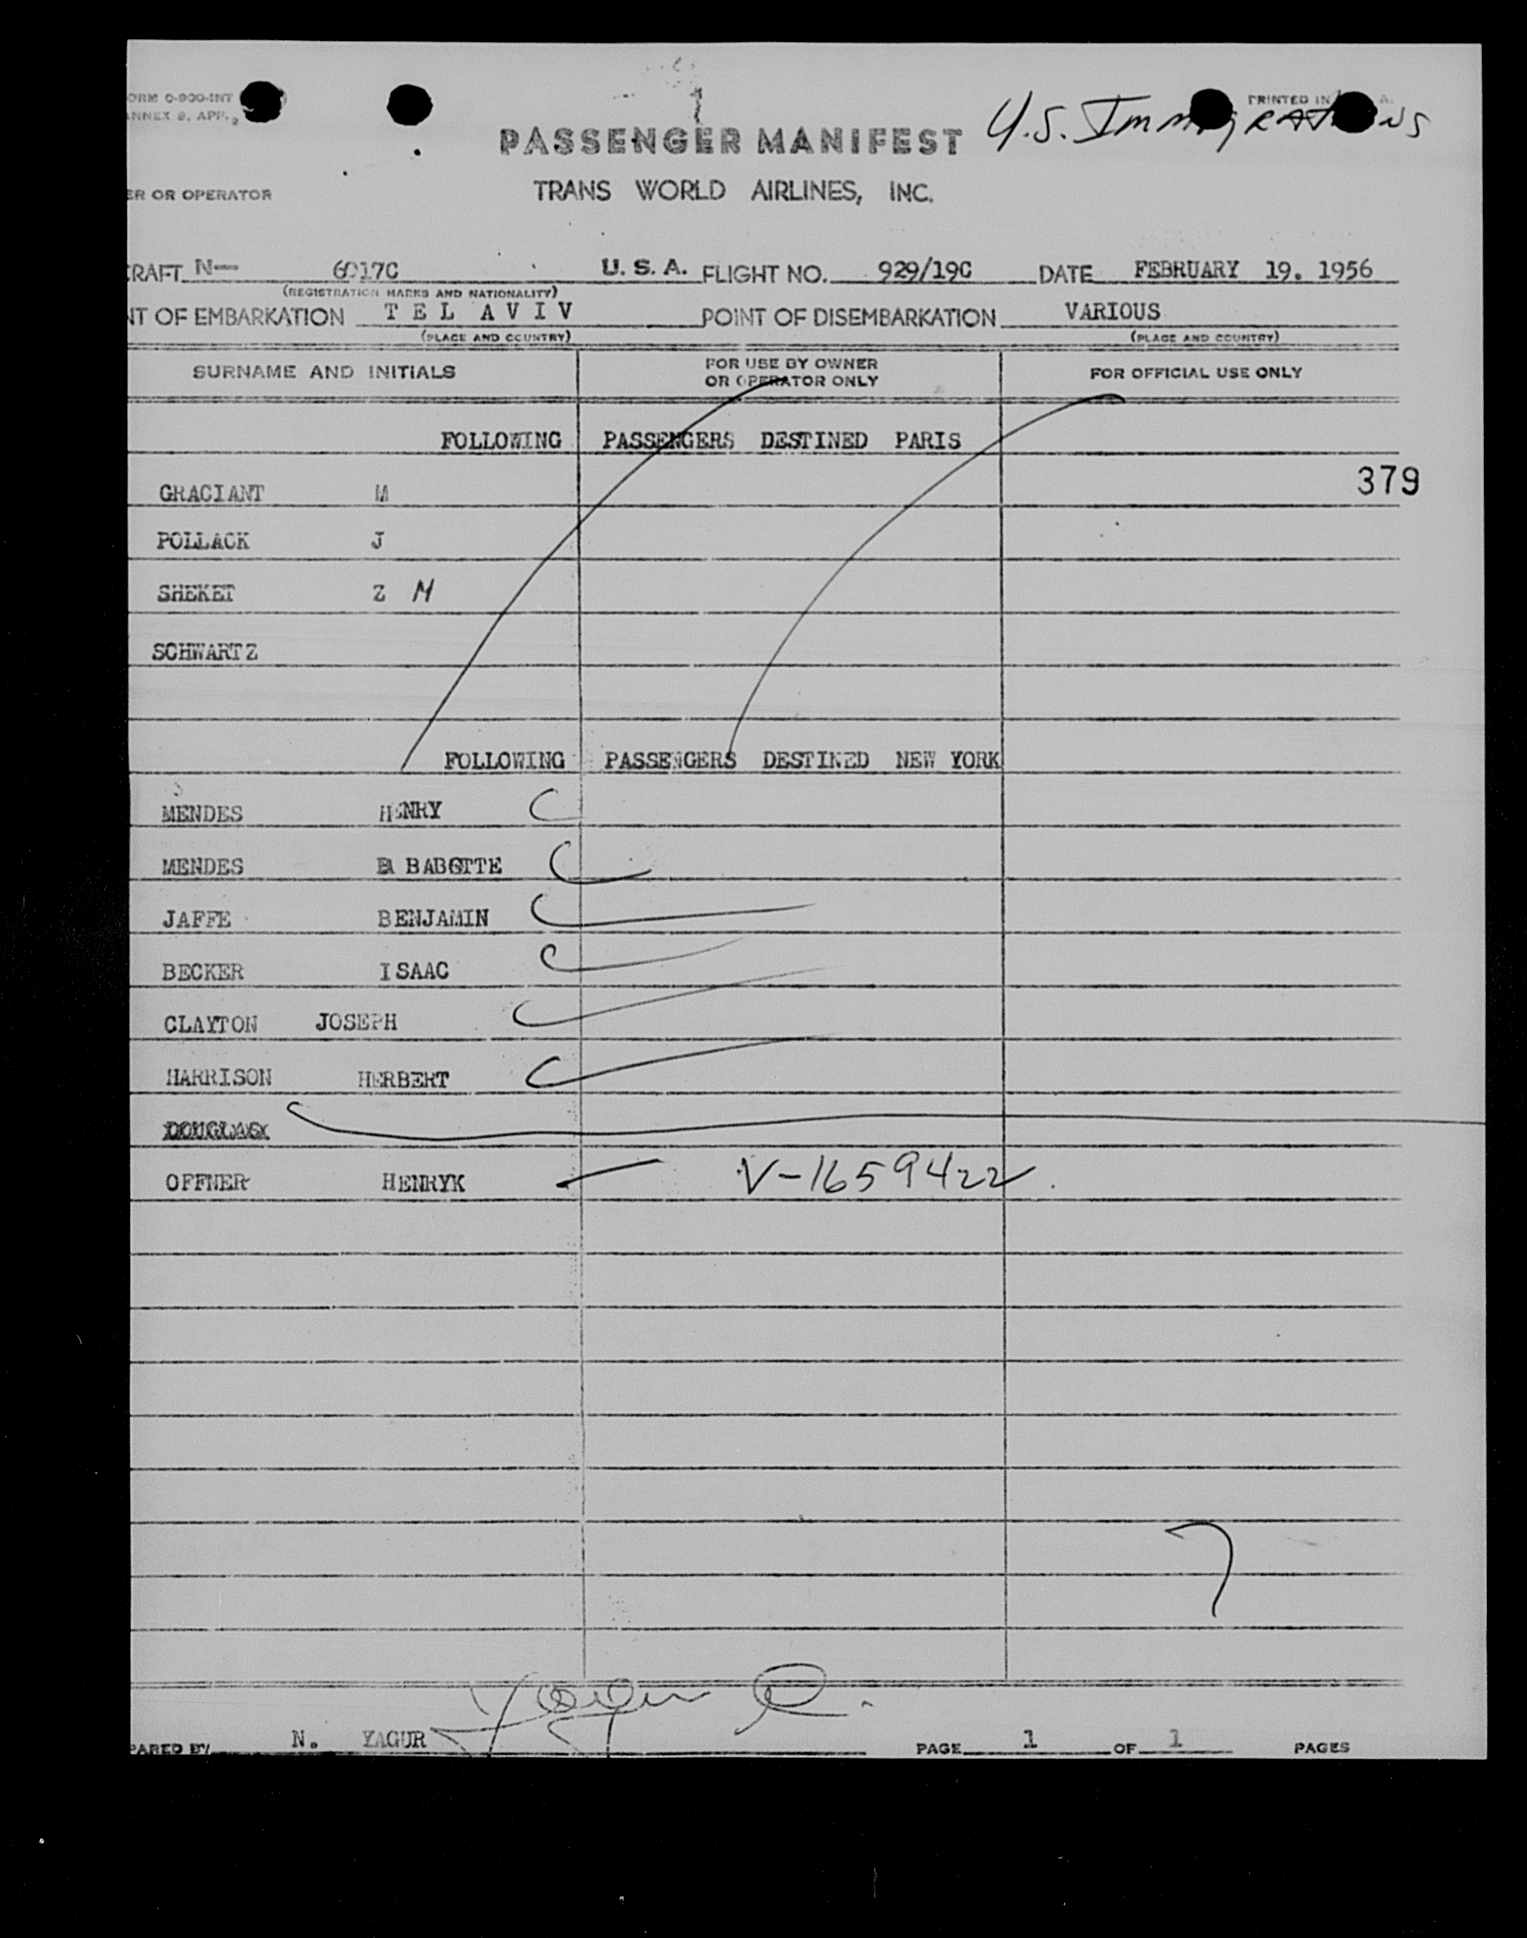 ORM O-900-INT
ANNEX 9, APP. 2
PRINTED IN
U.S. Immigrations
PASSENGER MANIFEST
ER OR OPERATOR
TRANS WORLD AIRLINES, INC.
CRAFT N— 6017C U. S. A. FLIGHT NO. 929/19C DATE FEBRUARY 19. 1956
(REGISTRATION MARKS AND NATIONALITY)
NT OF EMBARKATION TEL AVIV POINT OF DISEMBARKATION VARIOUS
(PLACE AND COUNTRY) (PLACE AND COUNTRY)
SURNAME AND INITIALS FOR USE BY OWNER OR OPERATOR ONLY FOR OFFICIAL USE ONLY
FOLLOWING PASSENGERS DESTINED PARIS
379
GRACIANT M
POLLACK J
SHEKET Z M
SCHWARTZ
FOLLOWING PASSENGERS DESTINED NEW YORK
MENDES HENRY
MENDES BABETTE
JAFFE BENJAMIN
BECKER ISAAC
CLAYTON JOSEPH
HARRISON HERBERT
DOUGLAS
OFFNER HENRYK V-1659422
7
PARED BY N. YAGUR PAGE 1 OF 1 PAGES